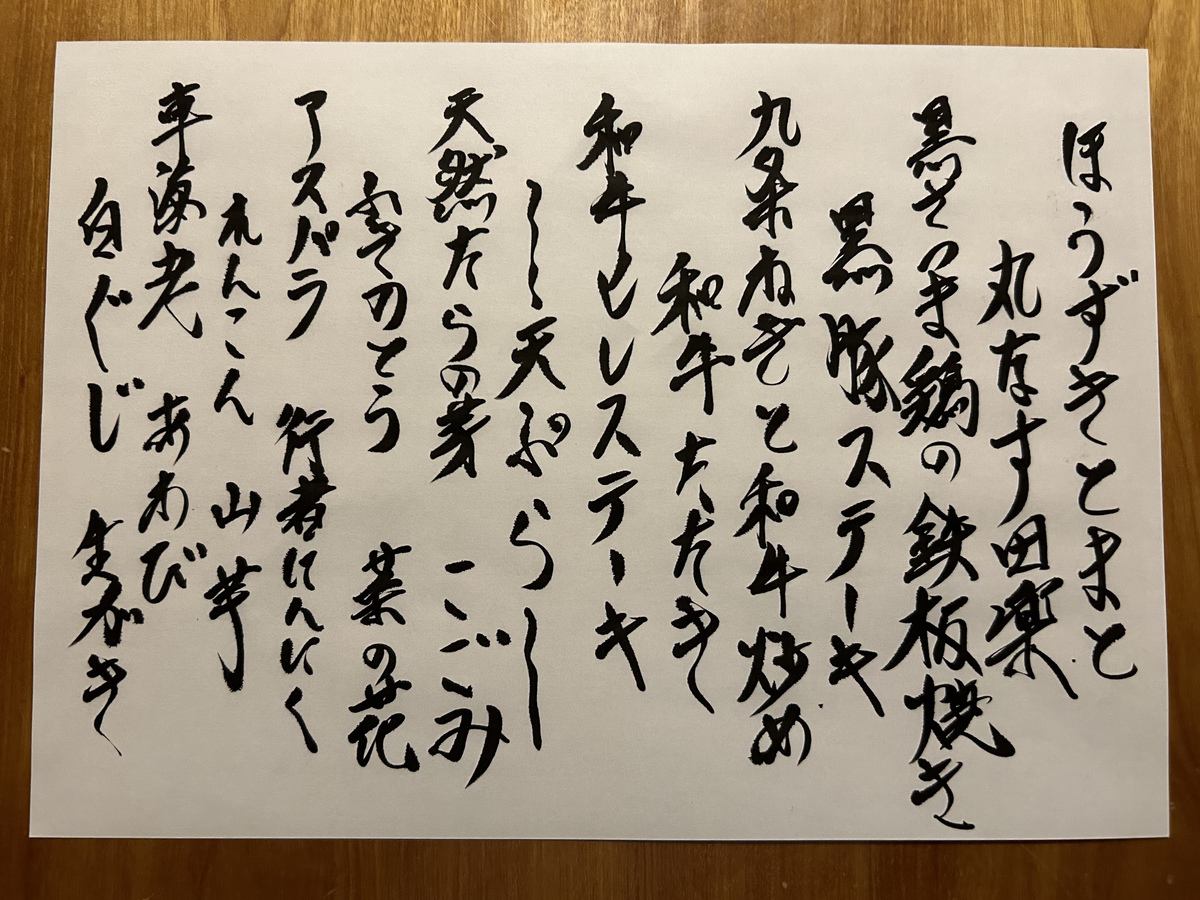 ほうずきとまと
丸なす田楽
黒さつま鶏の鉄板焼き
黒豚ステーキ
九条ねぎと和牛炒め
和牛たたき
和牛ヒレステーキ
〜〜天ぷら〜〜
天然たらの芽 こごみ
ふきのとう 菜の花
アスパラ 行者にんにく
れんこん 山芋
車海老 あわび
白ぐじ 生がき